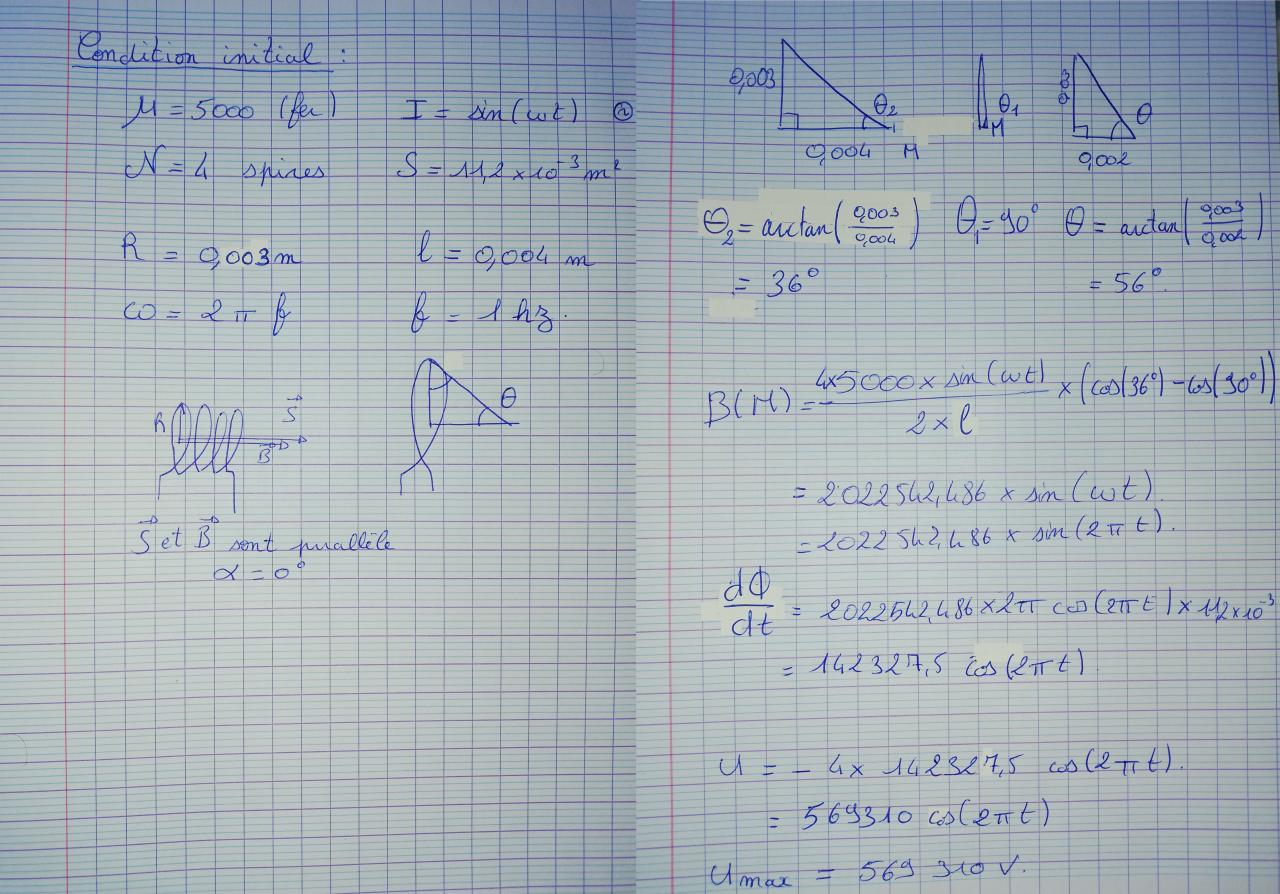 Condition initial :
μ = 5000 (fer) I = sin(ωt) A
N = 4 spires S = 11,2 × 10⁻³ m²
R = 0,003 m l = 0,004 m
ω = 2 π f f = 1 hz.
θ
R S⃗
B⃗
S⃗ et B⃗ sont parallèle
α = 0°
0,003 θ₂ 0,004 M
θ₁ M
θ 0,002
θ₂ = arctan(0,003/0,004) θ₁ = 90° θ = arctan(0,003/0,002)
= 36° = 56°.
B(M) = 4×5000 × sin(ωt) / 2 × l × (cos(36°) - cos(90°))
= 2022542,486 × sin(ωt).
= 2022542,486 × sin(2π t).
dΦ/dt = 2022542,486 × 2π cos(2π t) × 11,2×10⁻³
= 142327,5 cos(2π t).
U = - 4 × 142327,5 cos(2π t).
= 569310 cos(2π t)
U max = 569 310 V.